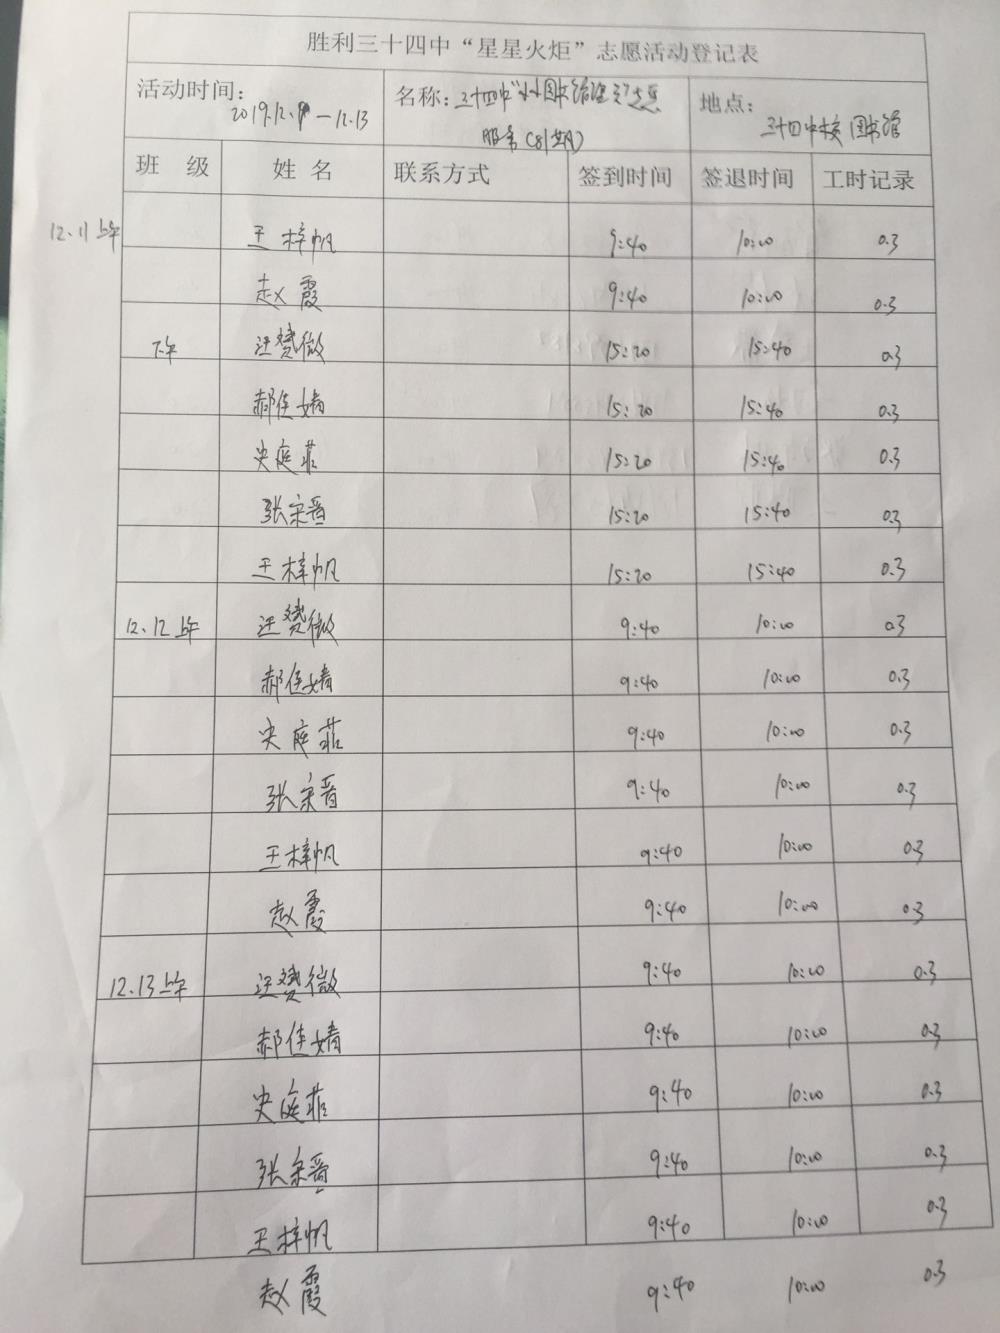 胜利三十四中“星星火炬”志愿活动登记表
活动时间： 名称：三十四中“小小图书馆 地点：
2019.12.9—12.13 服务（81期） 三十四中校图书馆
班 级 姓 名 联系方式 签到时间 签退时间 工时记录
12.11上午 王梓帆 9:40 10:00 0.3
赵霞 9:40 10:00 0.3
下午 汪赞微 15:20 15:40 0.3
郝佳婧 15:20 15:40 0.3
史庭菲 15:20 15:40 0.3
张宗晋 15:20 15:40 0.3
王梓帆 15:20 15:40 0.3
12.12上午 汪赞微 9:40 10:00 0.3
郝佳婧 9:40 10:00 0.3
史庭菲 9:40 10:00 0.3
张宗晋 9:40 10:00 0.3
王梓帆 9:40 10:00 0.3
赵霞 9:40 10:00 0.3
12.13上午 汪赞微 9:40 10:00 0.3
郝佳婧 9:40 10:00 0.3
史庭菲 9:40 10:00 0.3
张宗晋 9:40 10:00 0.3
王梓帆 9:40 10:00 0.3
赵霞 9:40 10:00 0.3